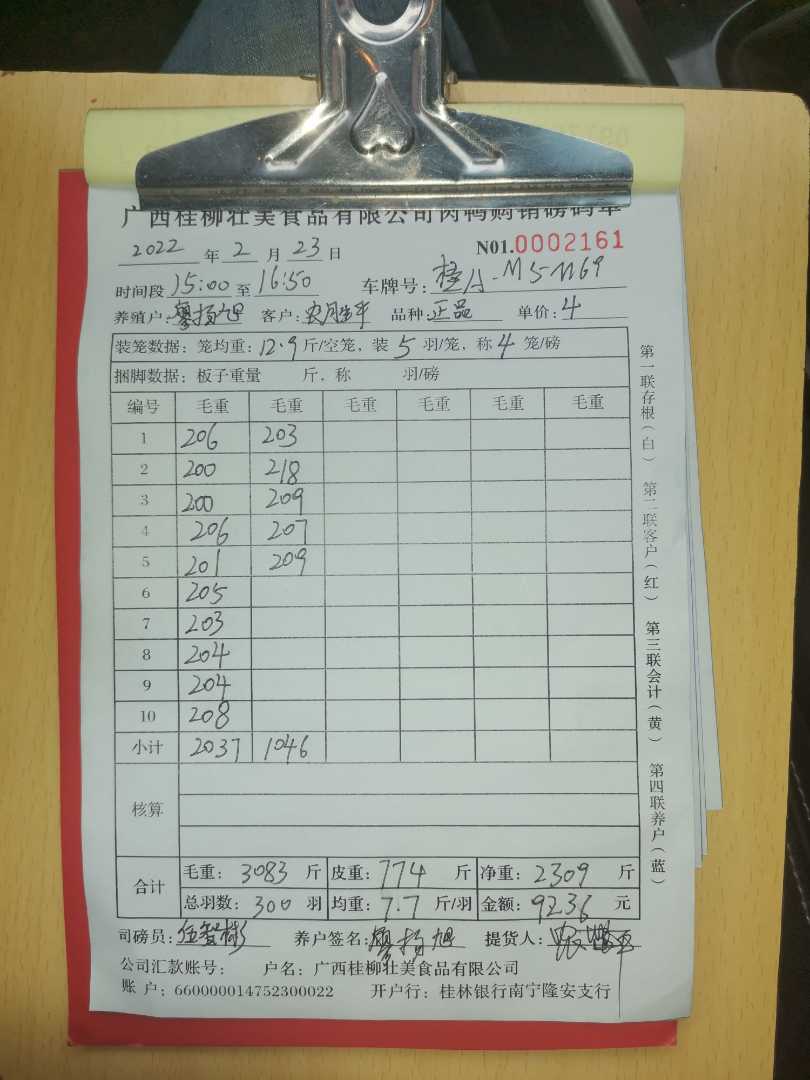 广西桂柳壮美食品有限公司肉鸭购销磅码单
2022 年 2 月 23 日 N01.0002161
时间段 15:00 至 16:50 车牌号: 桂A-M5M69
养殖户: 廖扬旭 客户: 品种: 正品 单价: 4
装笼数据: 笼均重: 12.9 斤/空笼, 装 5 羽/笼, 称 4 笼/磅
捆脚数据: 板子重量 斤, 称 羽/磅
编号 毛重 毛重 毛重 毛重 毛重 毛重
1 206 203
2 200 218
3 200 209
4 206 207
5 201 209
6 205
7 203
8 204
9 204
10 208
小计 2037 1046
核算
合计 毛重: 3083 斤 皮重: 774 斤 净重: 2309 斤
总羽数: 300 羽 均重: 7.7 斤/羽 金额: 9236 元
司磅员: 伍智彬 养户签名: 廖扬旭 提货人:
公司汇款账号: 户名: 广西桂柳壮美食品有限公司
账 户: 660000014752300022 开户行: 桂林银行南宁隆安支行
第一联存根(白) 第二联客户(红) 第三联会计(黄) 第四联养户(蓝)